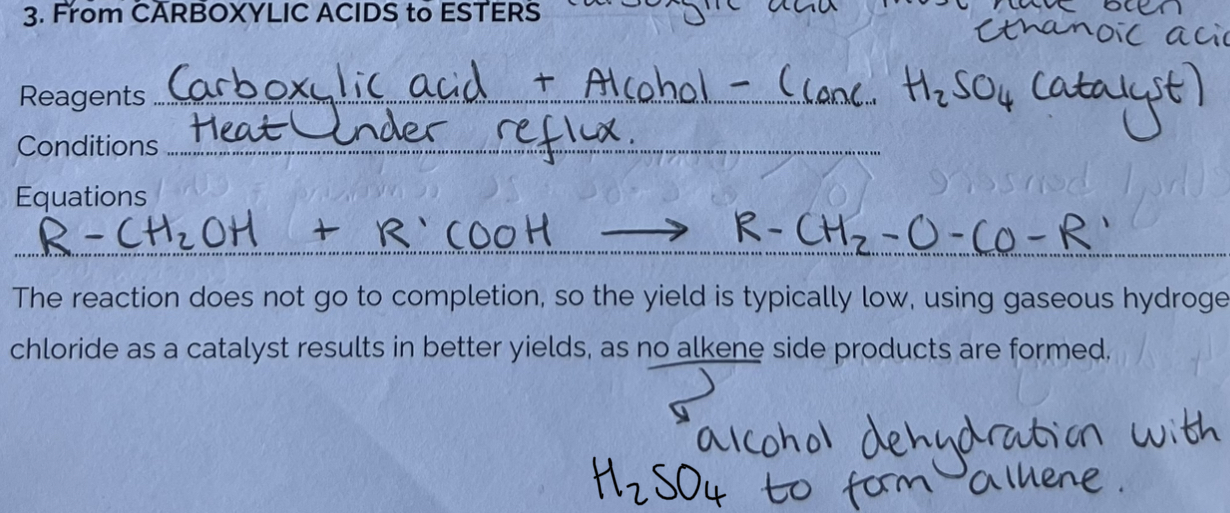 3. From CARBOXYLIC ACIDS to ESTERS
ethanoic acid
Reagents Carboxylic acid + Alcohol - (conc. H₂SO₄ catalyst)
Conditions Heat under reflux.
Equations
R-CH₂OH + R'COOH → R-CH₂-O-CO-R'
The reaction does not go to completion, so the yield is typically low, using gaseous hydroge
chloride as a catalyst results in better yields, as no alkene side products are formed.
alcohol dehydration with
H₂SO₄ to form alkene.